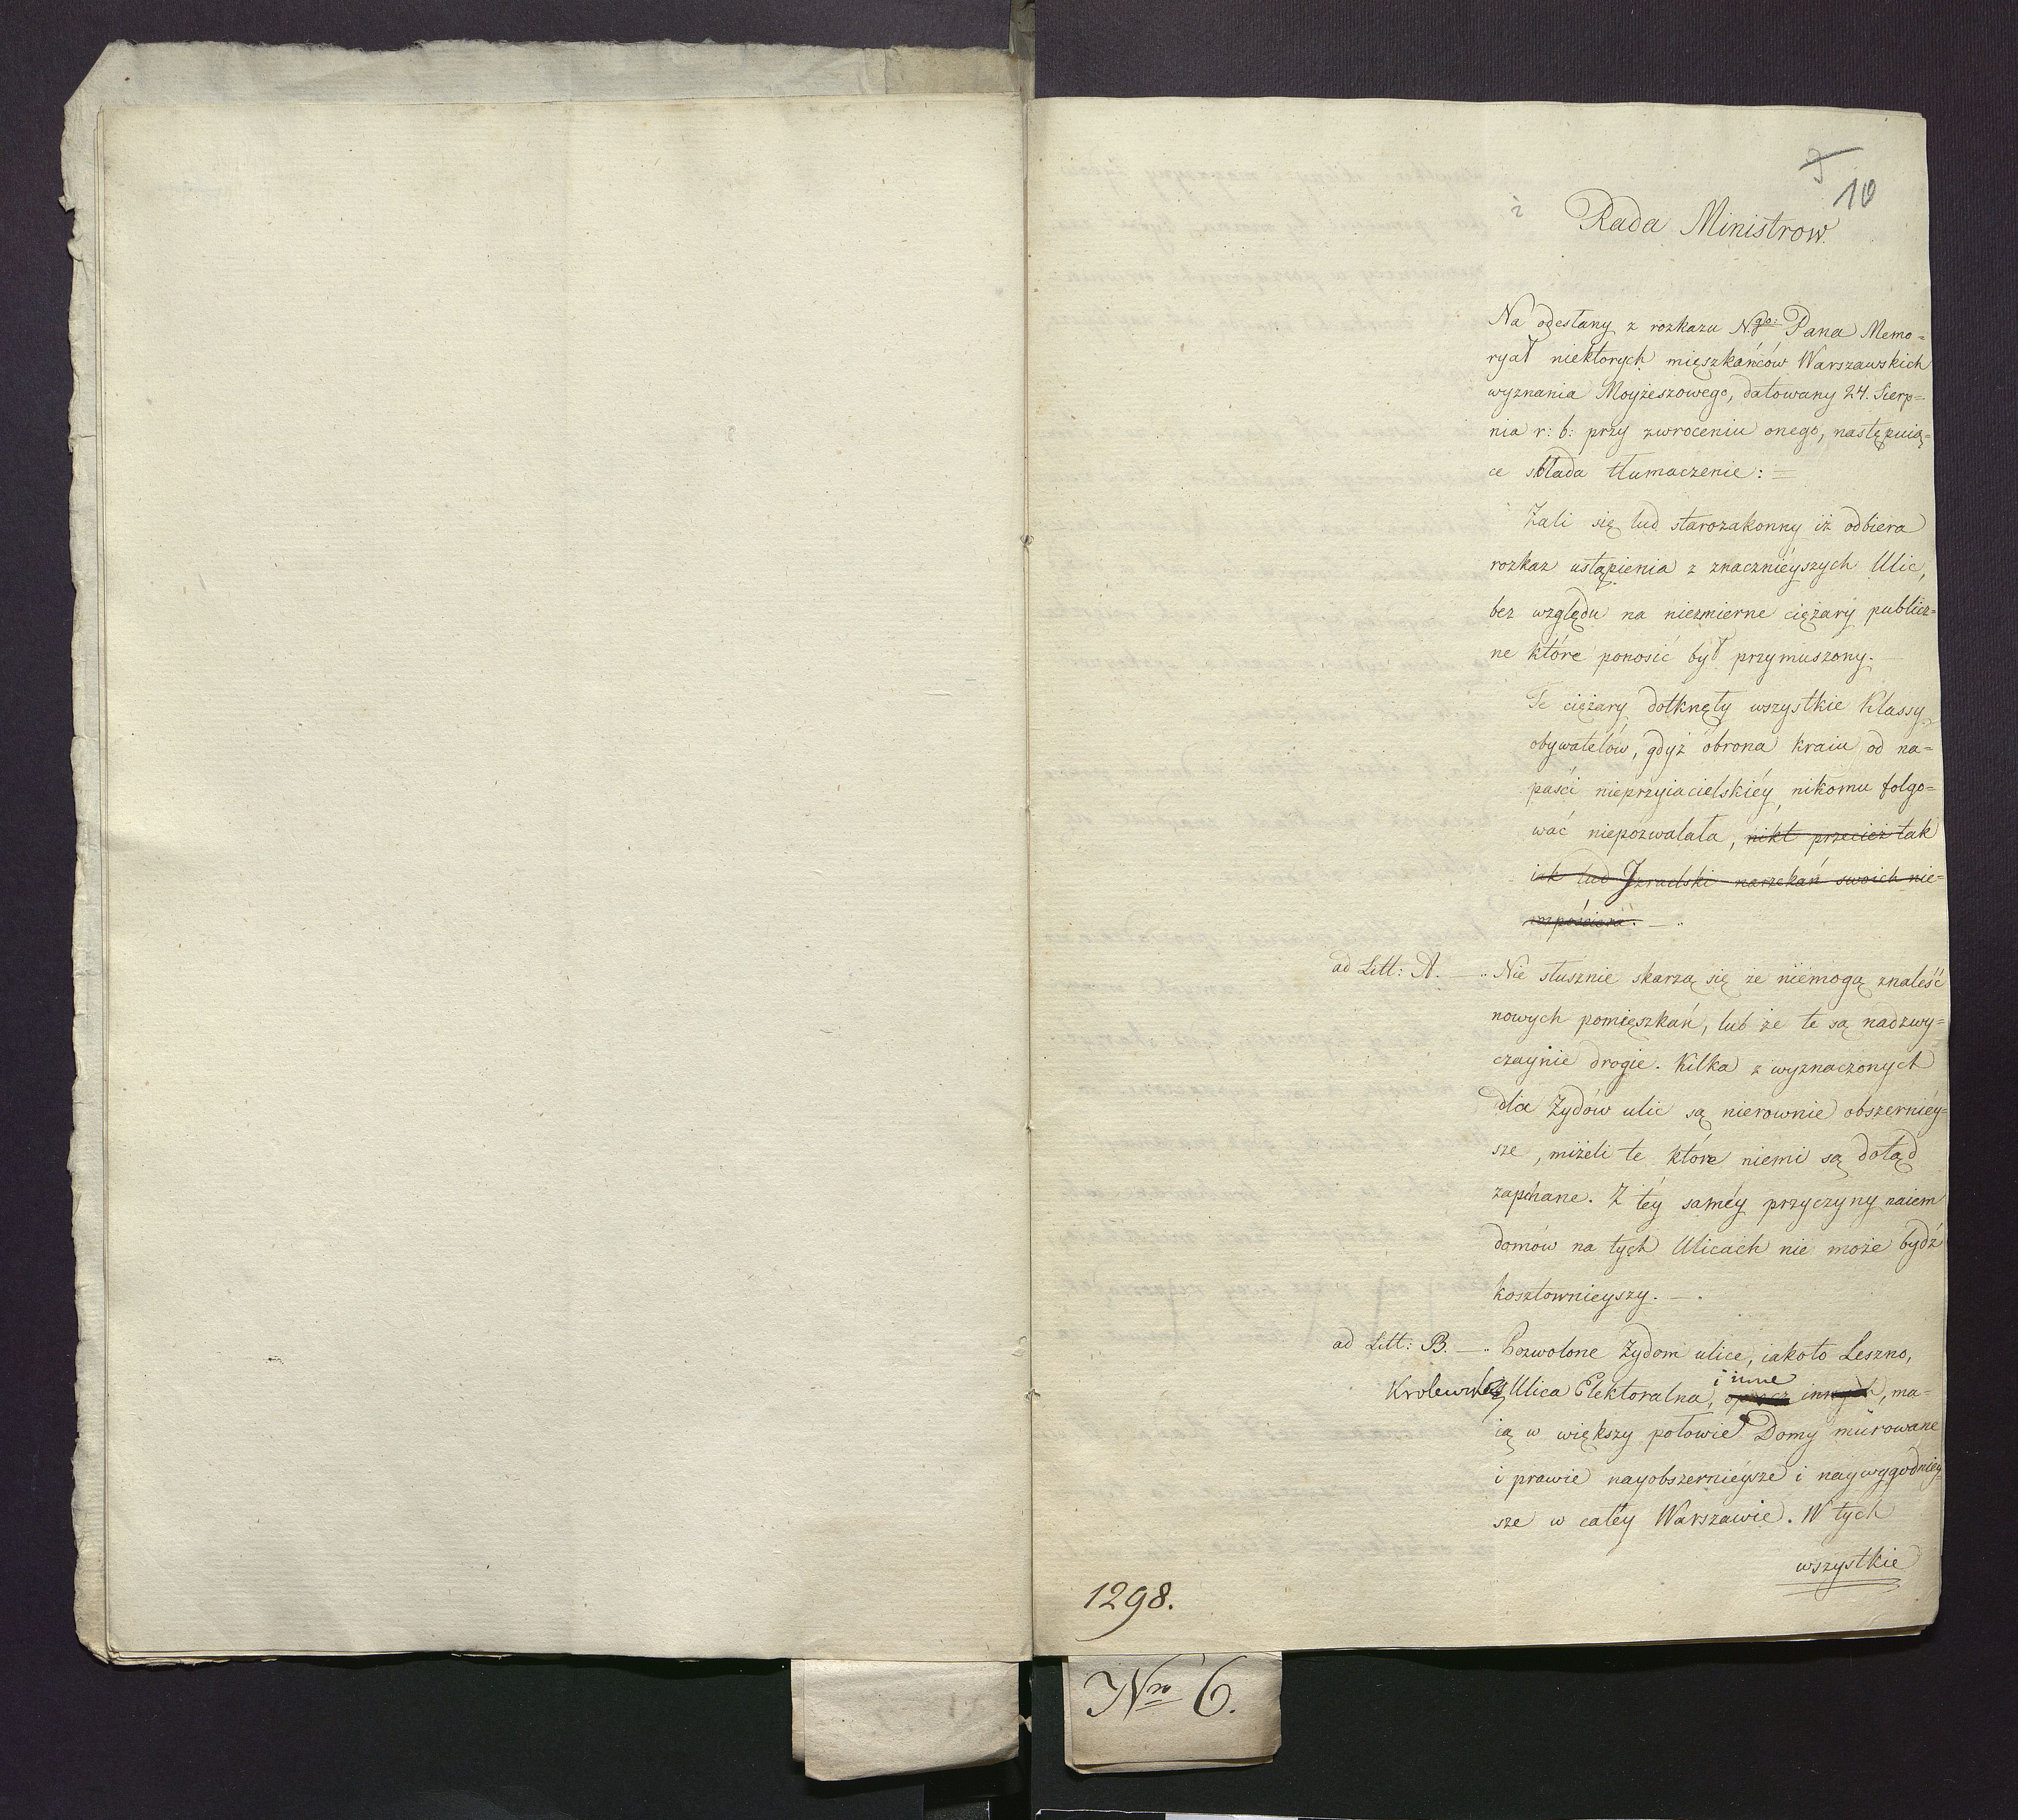 9
10
Rada Ministrow.
Na odesłany z rozkazu N.go: Pana Memo=
ryał niektorych mięszkańców Warszawskich
wyznania Moyżeszowego, datowany 24. Sierp=
nia r: b: przy zwroceniu onego, następuią=
ce składa tłumaczenie: =
Zali się lud starozakonny iż odbiera
rozkaz ustąpienia z znacznieyszych Ulic,
bez względu na niezmierne ciężary publicz=
ne które ponosić był przymuszony.
Te ciężary dotknęły wszystkie Klassy
obywatelów, gdyż obrona kraiu od na=
paści nieprzyiacielskiéy, nikomu folgo=
wać niepozwalała, nikt przecież tak
iak lud Izraelski narzekań swoich nie=
rozpościera. —
ad Litt: A. — Nie słusznie skarzą się ze niemogą znaleść
nowych pomięszkań, lub że te są nadzwy=
czaynie drogie. Kilka z wyznaczonych
dla Żydów ulic są nierownie obszerniéy=
sze, niżeli te które niemi są dotąd
zapchane. Z téy saméy przyczyny naiem
domów na tych Ulicach nie może bydź
kosztownieyszy. —
ad Litt: B. — Pozwolone Żydom ulice, iakoto Leszno,
i inne
Krolewska Ulica Elektoralna, oprocz innych, ma=
ią w większy połowie Domy murowane
i prawie nayobszernieysze i naywygodniey=
sze w całéy Warszawie. W tych
wszystkie
1298.
Nro 6.